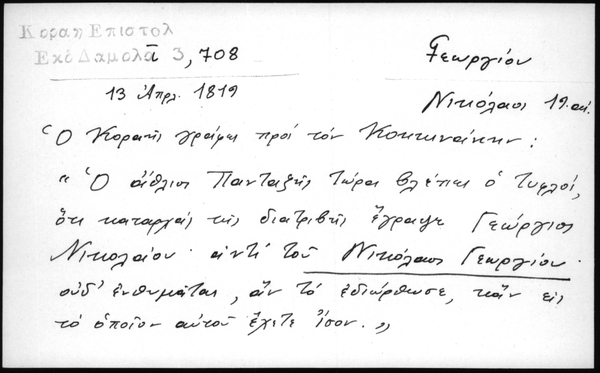 Κοραη Επιστολ
Εκδ Δαμαλᾶ ῑ 3, 708
Γεωργίου
13 Ἀπρ. 1819
Νικόλαος 19 αἰ.
Ὁ Κοραῆς γράφει πρὸς τὸν Κοκκινάκην :
" Ὁ ἄθλιος Πανταζῆς τώρα βλέπει ὁ τυφλός,
ὅτι καταρχὰς τῆς διατριβῆς ἔγραψε Γεώργιος
Νικολαίου ἀντὶ τοῦ Νικόλαος Γεωργίου ·
οὐδ' ἐνθυμᾶται, ἂν τὸ ἐδιώρθωσε, κἂν εἰς
τὸ ὁποῖον αὐτοῦ ἔχετε ἴσον. "